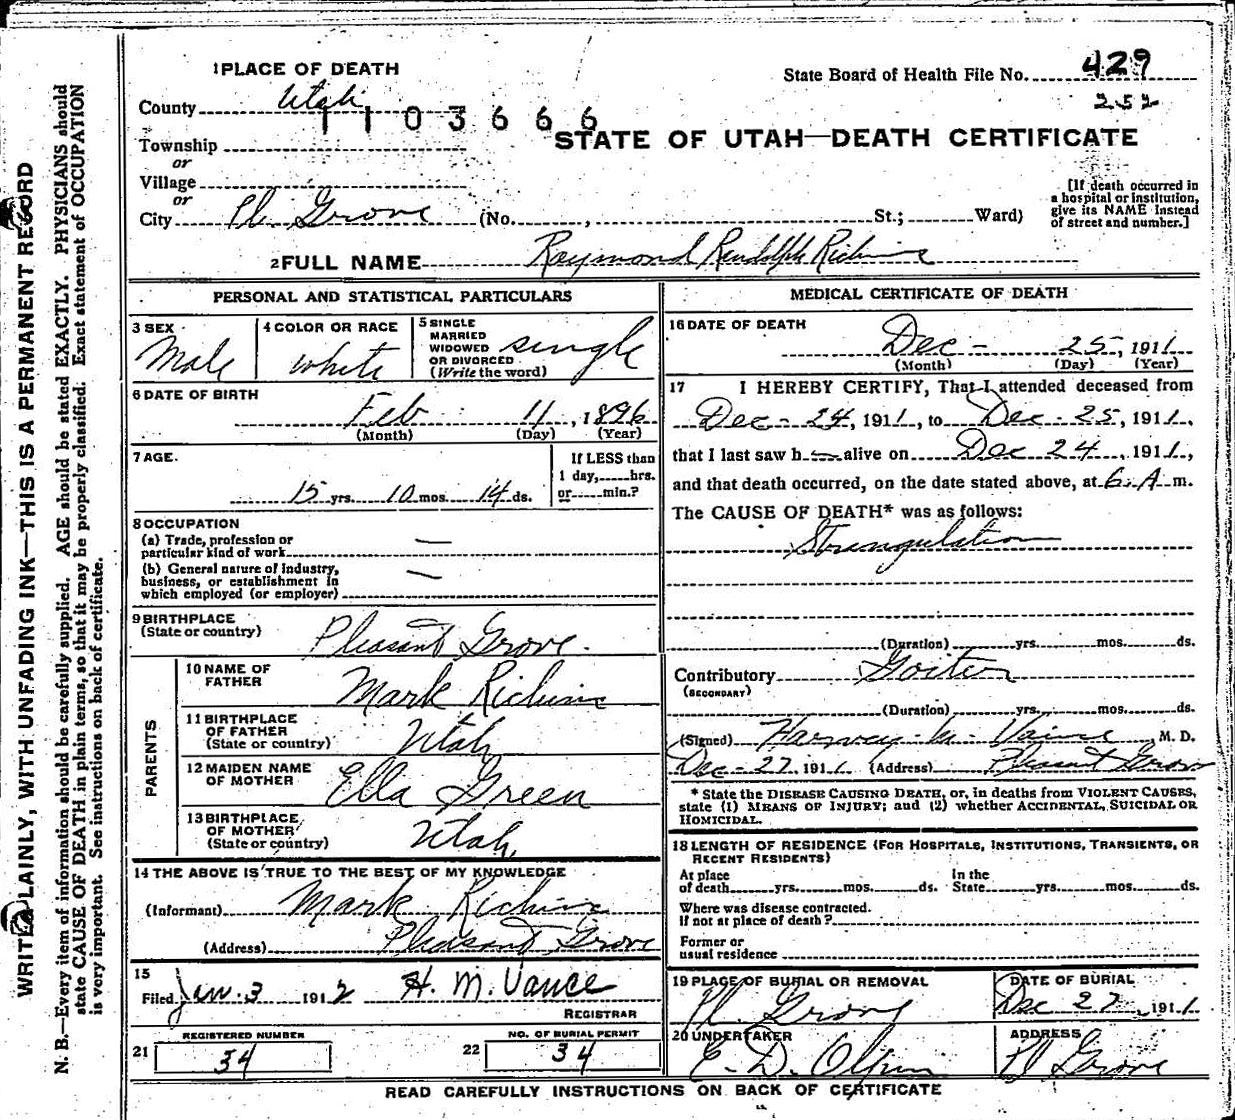 1 PLACE OF DEATH
State Board of Health File No. 429
252
County Utah
1103666
Township
STATE OF UTAH—DEATH CERTIFICATE
or
Village
or
City Pl. Grove (No. , St.; Ward)
[If death occurred in
a hospital or institution,
give its NAME instead
of street and number.]
2 FULL NAME Raymond Randolph Richins
PERSONAL AND STATISTICAL PARTICULARS
3 SEX
Male
4 COLOR OR RACE
white
5 SINGLE
MARRIED
WIDOWED
OR DIVORCED
(Write the word)
single
6 DATE OF BIRTH
Feb 11, 1896
(Month) (Day) (Year)
7 AGE.
15 yrs. 10 mos. 14 ds.
If LESS than
1 day, hrs.
or min.?
8 OCCUPATION
(a) Trade, profession or
particular kind of work —
(b) General nature of industry,
business, or establishment in
which employed (or employer) —
9 BIRTHPLACE
(State or country) Pleasant Grove.
PARENTS
10 NAME OF
FATHER Mark Richins
11 BIRTHPLACE
OF FATHER
(State or country) Utah
12 MAIDEN NAME
OF MOTHER Ella Green
13 BIRTHPLACE
OF MOTHER
(State or country) Utah
14 THE ABOVE IS TRUE TO THE BEST OF MY KNOWLEDGE
(Informant) Mark Richins
(Address) Pleasant Grove
15
Filed Jan. 3 1912 H. M. Vance
REGISTRAR
21 REGISTERED NUMBER
34
22 NO. OF BURIAL PERMIT
34
MEDICAL CERTIFICATE OF DEATH
16 DATE OF DEATH
Dec - 25, 1911
(Month) (Day) (Year)
17 I HEREBY CERTIFY, That I attended deceased from
Dec - 24, 1911, to Dec - 25, 1911,
that I last saw h alive on Dec 24, 1911,
and that death occurred, on the date stated above, at 6. A m.
The CAUSE OF DEATH* was as follows:
Strangulation
(Duration) yrs. mos. ds.
Contributory Goiter
(SECONDARY)
(Duration) yrs. mos. ds.
(Signed) Harvey M. Vance M. D.
Dec - 27, 1911 (Address) Pleasant Grove
* State the DISEASE CAUSING DEATH, or, in deaths from VIOLENT CAUSES,
state (1) MEANS OF INJURY; and (2) whether ACCIDENTAL, SUICIDAL OR
HOMICIDAL.
18 LENGTH OF RESIDENCE (FOR HOSPITALS, INSTITUTIONS, TRANSIENTS, OR
RECENT RESIDENTS)
At place In the
of death yrs. mos. ds. State yrs. mos. ds.
Where was disease contracted.
If not at place of death?
Former or
usual residence
19 PLACE OF BURIAL OR REMOVAL
Pl. Grove
DATE OF BURIAL
Dec 27, 1911
20 UNDERTAKER
E. D. Olpin
ADDRESS
Pl Grove
READ CAREFULLY INSTRUCTIONS ON BACK OF CERTIFICATE
WRITE PLAINLY, WITH UNFADING INK—THIS IS A PERMANENT RECORD
N. B.—Every item of information should be carefully supplied. AGE should be stated EXACTLY. PHYSICIANS should
state CAUSE OF DEATH in plain terms, so that it may be properly classified. Exact statement of OCCUPATION
is very important. See instructions on back of certificate.